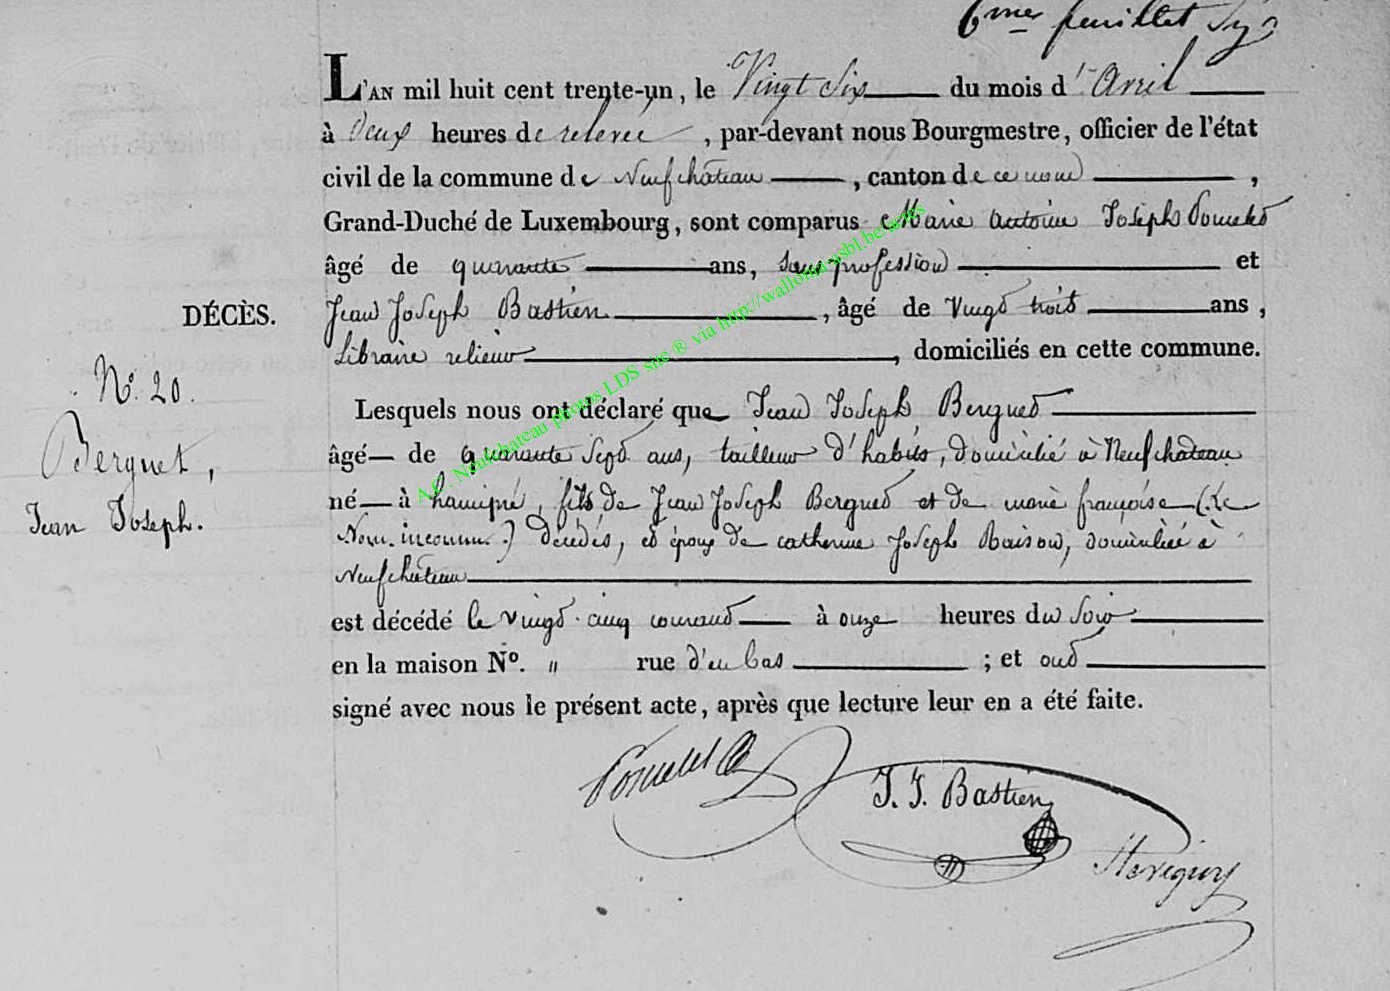 6mes feuillet
L'AN mil huit cent trente-un, le Vingt Six du mois d'Avril
à Deux heures de relevée, par-devant nous Bourgmestre, officier de l'état
civil de la commune de Neufchâteau, canton de ce nom,
Grand-Duché de Luxembourg, sont comparus Marie Antoine Joseph Pomelet
âgé de quarante ans, Sans profession et
DÉCÈS.
Jean Joseph Bastien, âgé de Vingt trois ans,
Libraire relieur, domiciliés en cette commune.
N°. 20.
Berguet,
Jean Joseph.
Lesquels nous ont déclaré que Jean Joseph Berguet
âgé de quarante Sept ans, tailleur d'habits, domicilié à Neufchâteau
né à hamipré, fils de Jean Joseph Berguet et de marie françoise (Le
Nom inconnu) décédés, et époux de catherine Joseph, domiciliée à
Neufchâteau
est décédé le vingt-cinq courant à onze heures du Soir
en la maison N°. " rue d'en bas; et ont
signé avec nous le présent acte, après que lecture leur en a été faite.
J. J. Bastien
A.C. Neufchateau photos LDS site ® via http://wallonia-asbl.be/actes